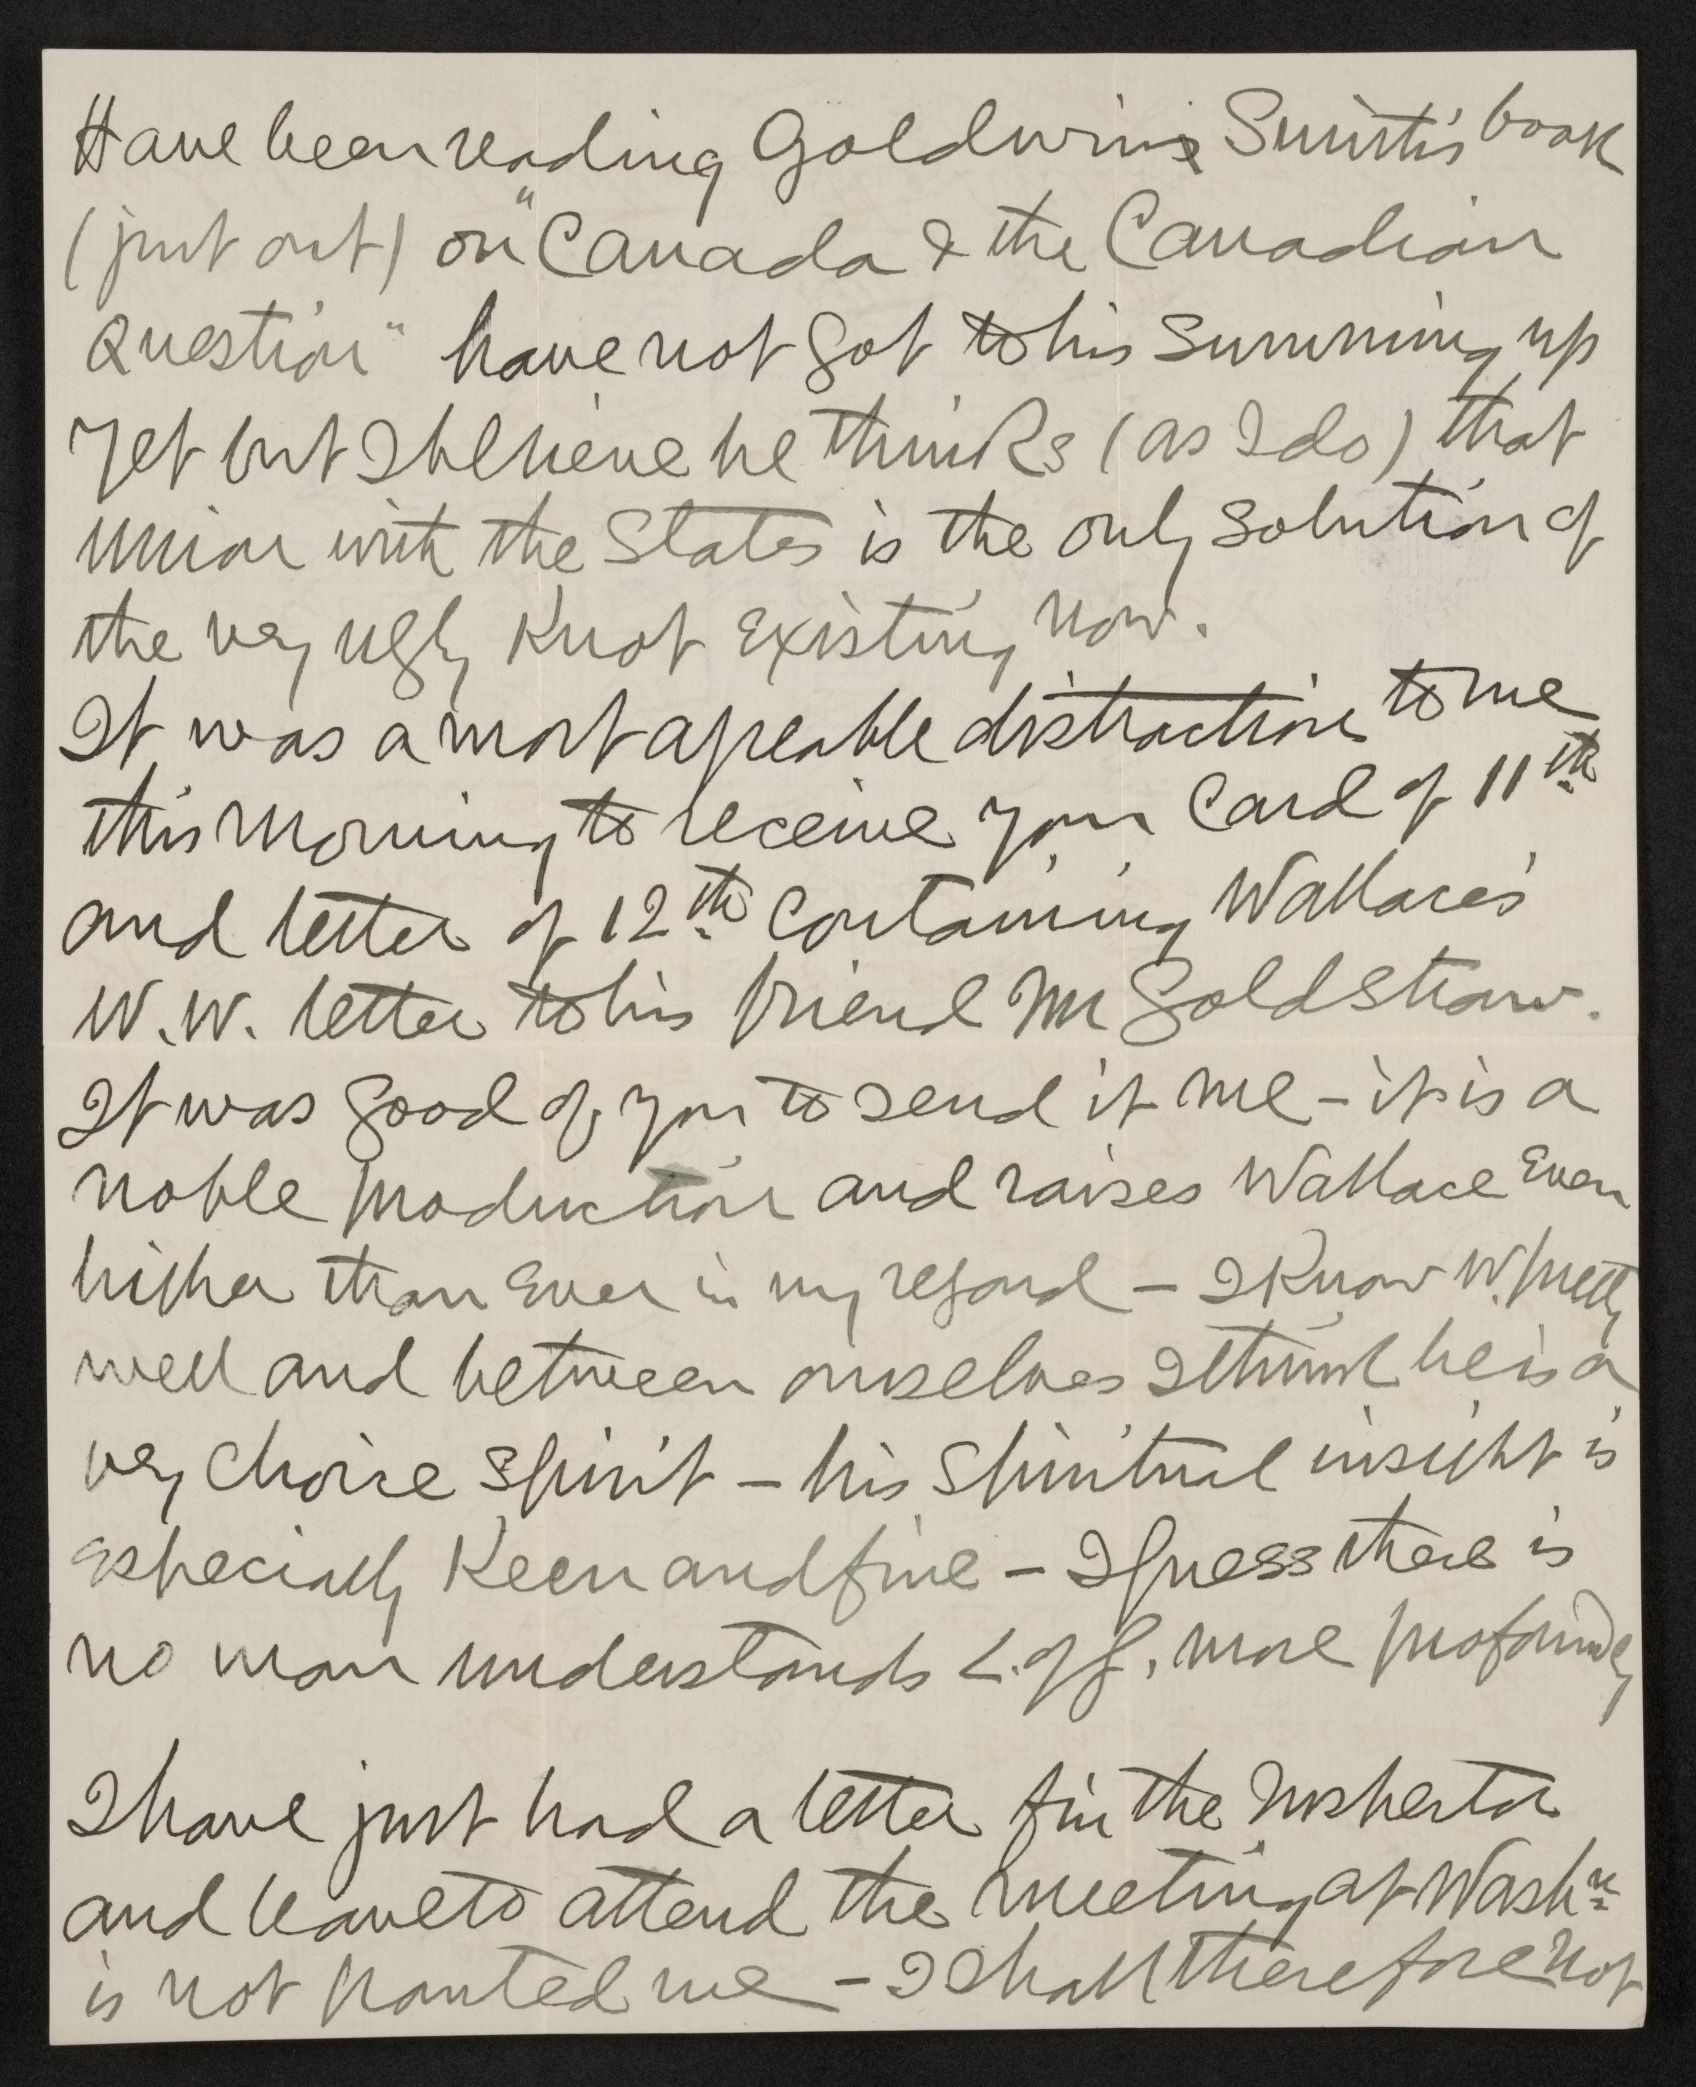 Have been reading Goldwin Smith's book
(just out) on "Canada & the Canadian
Question" have not got to his summing up
yet but I believe he thinks (as I do) that
union with the States is the only solution of
the very ugly Knot existing now.
It was a most agreable distraction to me
this morning to receive your card of 11th
and letter of 12th containing Wallace's
W.W. letter to his friend Mr Goldstraw.
It was good of you to send it me - it is a
noble production and raises Wallace even
higher than ever in my regard - I know W. pretty
well and between ourselves I think he is a
very choice spirit - his spiritual insight is
especially Keen and fine - I guess there is
no man understands L. of G. more profoundly
I have just had a letter fm the Inspector
and leave to attend the meeting at Washn
is not granted me - I shall therefore not